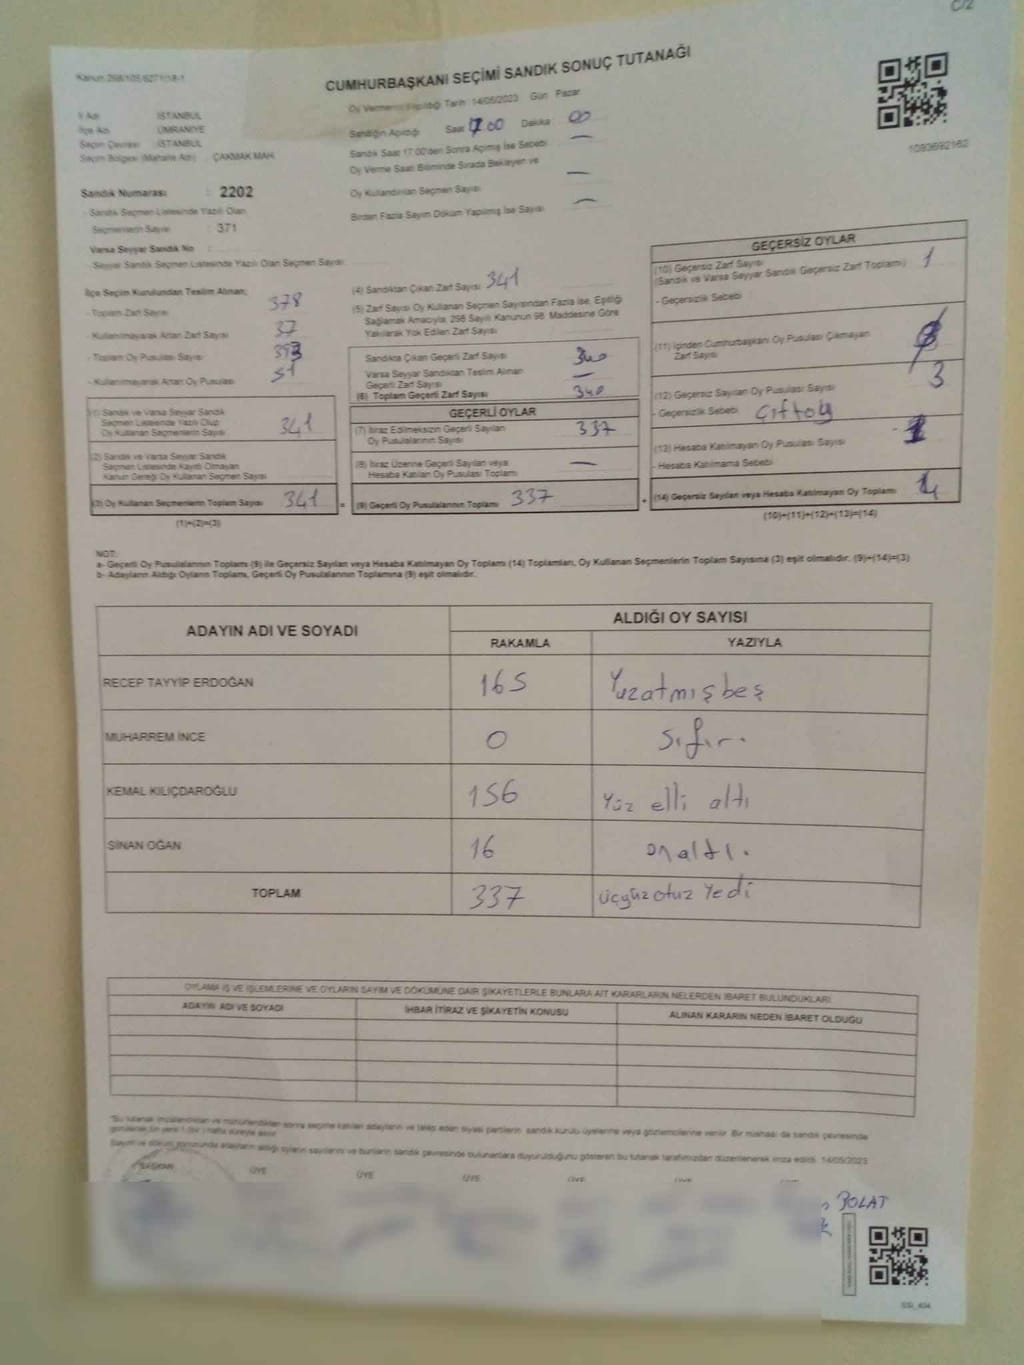 C/2
Kanun 298/105,6271/18-1
CUMHURBAŞKANI SEÇİMİ SANDIK SONUÇ TUTANAĞI
Oy Vermenin Yapıldığı Tarih 14/05/2023 Gün Pazar
İl Adı İSTANBUL
İlçe Adı ÜMRANİYE
Seçim Çevresi İSTANBUL
Seçim Bölgesi (Mahalle Adı) ÇAKMAK MAH.
Sandığın Açıldığı Saat 17.00 Dakika 00
Sandık Saat 17:00'den Sonra Açılmış İse Sebebi —
Oy Verme Saati Bitiminde Sırada Bekleyen ve
Oy Kullandırılan Seçmen Sayısı —
Birden Fazla Sayım Döküm Yapılmış İse Sayısı —
1093692162
Sandık Numarası : 2202
- Sandık Seçmen Listesinde Yazılı Olan
Seçmenlerin Sayısı : 371
Varsa Seyyar Sandık No :
- Seyyar Sandık Seçmen Listesinde Yazılı Olan Seçmen Sayısı:
İlçe Seçim Kurulundan Teslim Alınan;
- Toplam Zarf Sayısı 378
- Kullanılmayarak Artan Zarf Sayısı 37
- Toplam Oy Pusulası Sayısı
- Kullanılmayarak Artan Oy Pusulası 51
(1) Sandık ve Varsa Seyyar Sandık
Seçmen Listesinde Yazılı Olup
Oy Kullanan Seçmenlerin Sayısı 341
(2) Sandık ve Varsa Seyyar Sandık
Seçmen Listesinde Kayıtlı Olmayan
Kanun Gereği Oy Kullanan Seçmen Sayısı
(3) Oy Kullanan Seçmenlerin Toplam Sayısı 341 =
(1)+(2)=(3)
(4) Sandıktan Çıkan Zarf Sayısı 341
(5) Zarf Sayısı Oy Kullanan Seçmen Sayısından Fazla İse, Eşitliği
Sağlamak Amacıyla, 298 Sayılı Kanunun 98. Maddesine Göre
Yakılarak Yok Edilen Zarf Sayısı
Sandıkta Çıkan Geçerli Zarf Sayısı 340
Varsa Seyyar Sandıktan Teslim Alınan
Geçerli Zarf Sayısı —
(6) Toplam Geçerli Zarf Sayısı 340
GEÇERLİ OYLAR
(7) İtiraz Edilmeksizin Geçerli Sayılan
Oy Pusulalarının Sayısı 337
(8) İtiraz Üzerine Geçerli Sayılan veya
Hesaba Katılan Oy Pusulası Toplamı —
(9) Geçerli Oy Pusulalarının Toplamı 337 +
GEÇERSİZ OYLAR
(10) Geçersiz Zarf Sayısı
(Sandık ve Varsa Seyyar Sandık Geçersiz Zarf Toplamı) 1
- Geçersizlik Sebebi
(11) İçinden Cumhurbaşkanı Oy Pusulası Çıkmayan
Zarf Sayısı
(12) Geçersiz Sayılan Oy Pusulası Sayısı 3
- Geçersizlik Sebebi Çiftoy
(13) Hesaba Katılmayan Oy Pusulası Sayısı
- Hesaba Katılmama Sebebi
(14) Geçersiz Sayılan veya Hesaba Katılmayan Oy Toplamı 4
(10)+(11)+(12)+(13)=(14)
NOT:
a- Geçerli Oy Pusulalarının Toplamı (9) ile Geçersiz Sayılan veya Hesaba Katılmayan Oy Toplamı (14) Toplamları, Oy Kullanan Seçmenlerin Toplam Sayısına (3) eşit olmalıdır. (9)+(14)=(3)
b- Adayların Aldığı Oyların Toplamı, Geçerli Oy Pusulalarının Toplamına (9) eşit olmalıdır.
ADAYIN ADI VE SOYADI ALDIĞI OY SAYISI
RAKAMLA YAZIYLA
RECEP TAYYİP ERDOĞAN 165 Yuzatmışbeş
MUHARREM İNCE 0 sıfır.
KEMAL KILIÇDAROĞLU 156 Yüz elli altı
SİNAN OĞAN 16 onaltı.
TOPLAM 337 üçyüzotuz Yedi
OYLAMA İŞ VE İŞLEMLERİNE VE OYLARIN SAYIM VE DÖKÜMÜNE DAİR ŞİKAYETLERLE BUNLARA AİT KARARLARIN NELERDEN İBARET BULUNDUKLARI
ADAYIN ADI VE SOYADI İHBAR İTİRAZ VE ŞİKAYETİN KONUSU ALINAN KARARIN NEDEN İBARET OLDUĞU
"Bu tutanak imzalandıktan ve mühürlendikten sonra seçime katılan adayların ve talep eden siyasi partilerin sandık kurulu üyelerine veya gözlemcilerine verilir. Bir nüshası da sandık çevresinde
görülebilecek yere 1 (bir) hafta süreyle asılır.
Sayım ve döküm sonucunda adayların aldığı oyların sayılarını ve bunların sandık çevresinde bulunanlara duyurulduğunu gösteren bu tutanak tarafımızdan düzenlenerek imza edildi. 14/05/2023
BAŞKAN ÜYE ÜYE ÜYE ÜYE ÜYE
BOLAT